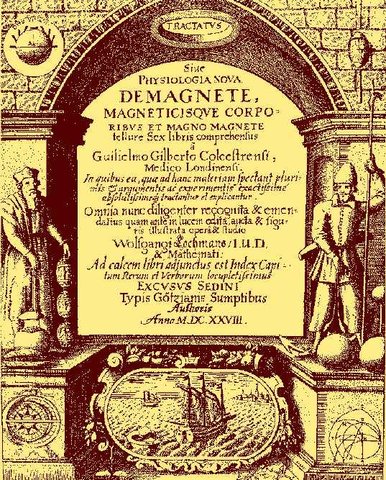 TRACTATUS
Siue
PHYSIOLOGIA NOVA
DE MAGNETE,
MAGNETICISQVE CORPO-
RIBVS ET MAGNO MAGNETE
tellure Sex libris comprehensus
â
Guilielmo Gilberto Colcestrensi,
Medico Londinensi.
In quibus ea, quæ ad hanc materiam spectant pluri-
mis & argumentis ac experimentis exactissimè
absolutissimeq; tractantur et explicantur.
Omnia nunc diligenter recognita & emen-
datius quam antè in lucem edita, aucta & figu-
ris illustrata operâ & studio
Wolfgangi Lochmans / I.U.D.
& Mathemati:
Ad calcem libri adjunctus est Index Capi-
tum Rerum et Verborum locupletissimus
EXCVSVS SEDINI
Typis Götzianis Sumptibus
Authoris
Anno M.DC.XXVIII.